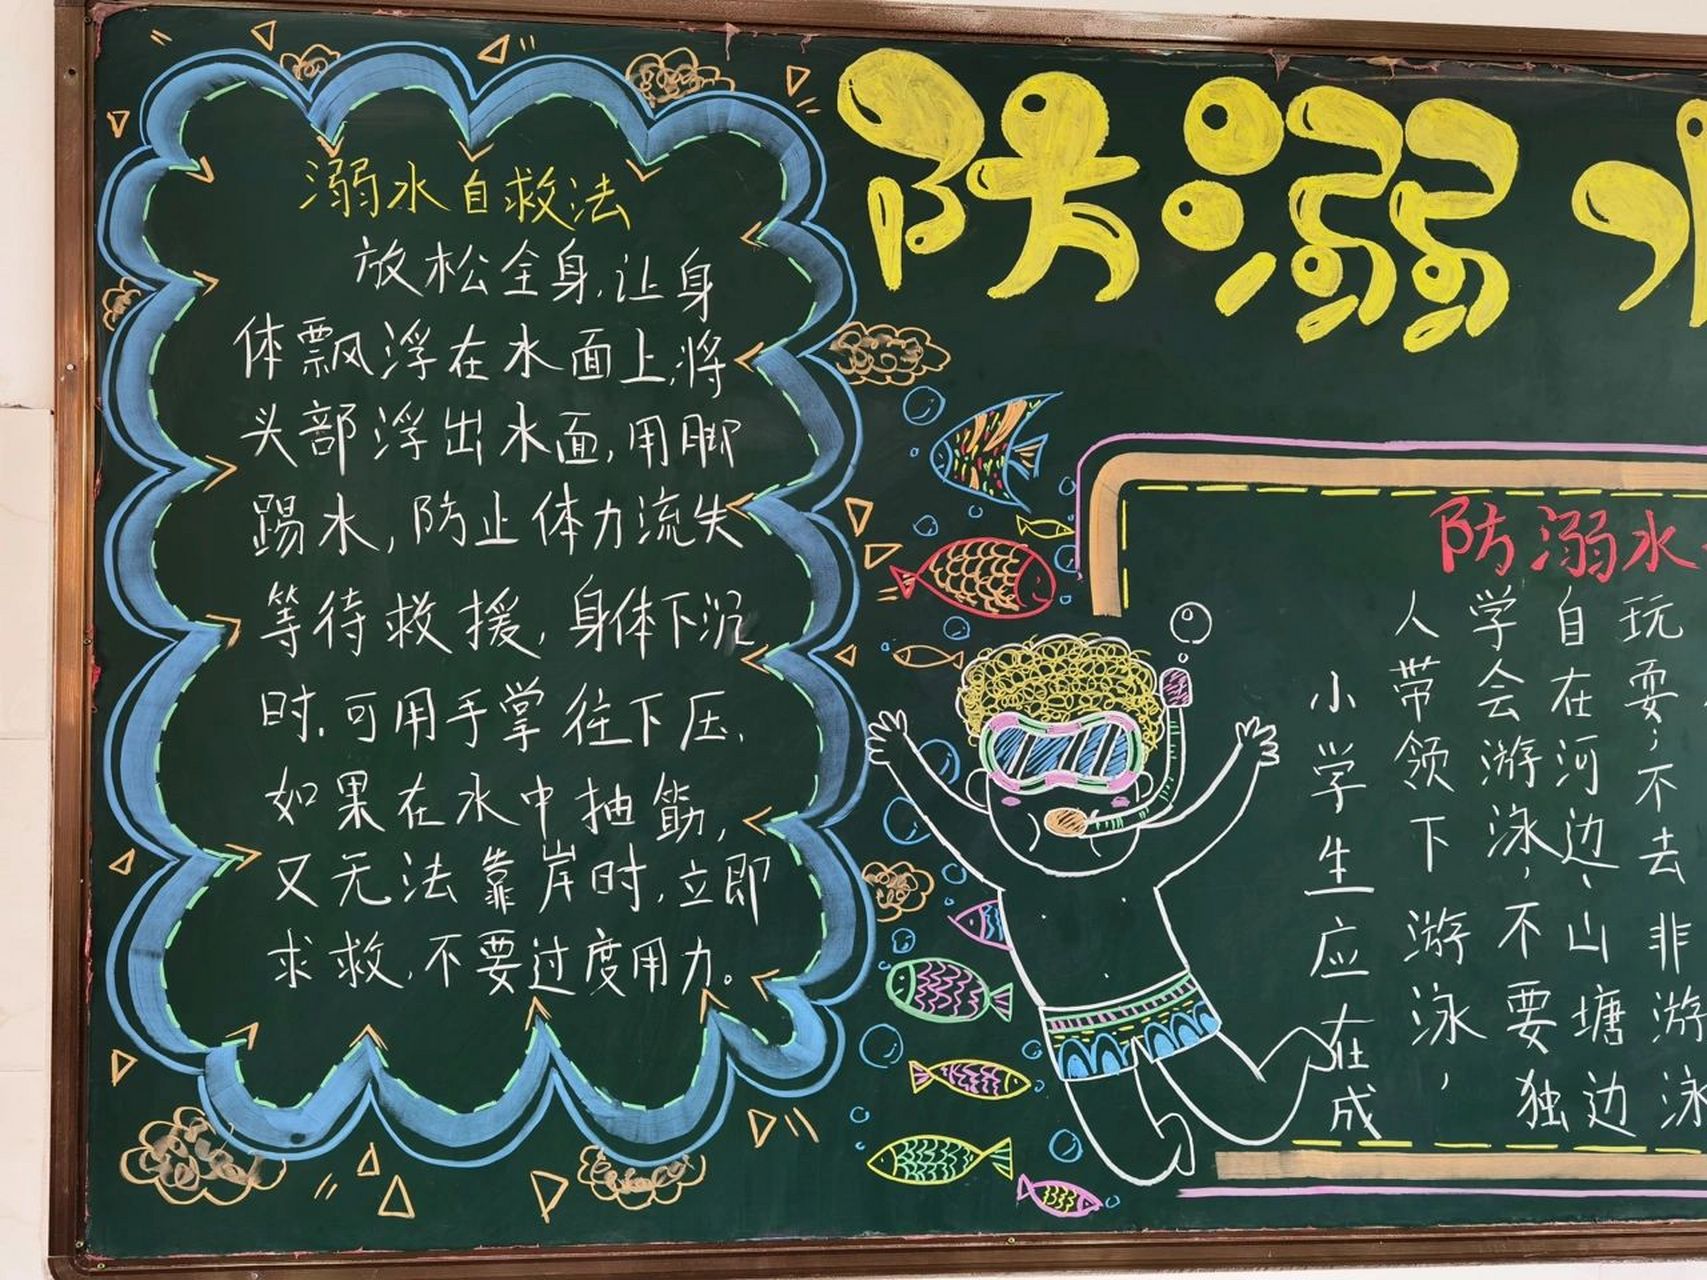 防溺
溺水自救法
放松全身,让身
体飘浮在水面上,将
头部浮出水面,用脚
踢水,防止体力流失
等待救援,身体下沉
时,可用手掌往下压.
如果在水中抽筋,
又无法靠岸时,立即
求救,不要过度用力。
防溺水
小学生应在成
人带领下游泳，
学会游泳，不要独
自在河边、山塘边
玩耍；不去非游泳